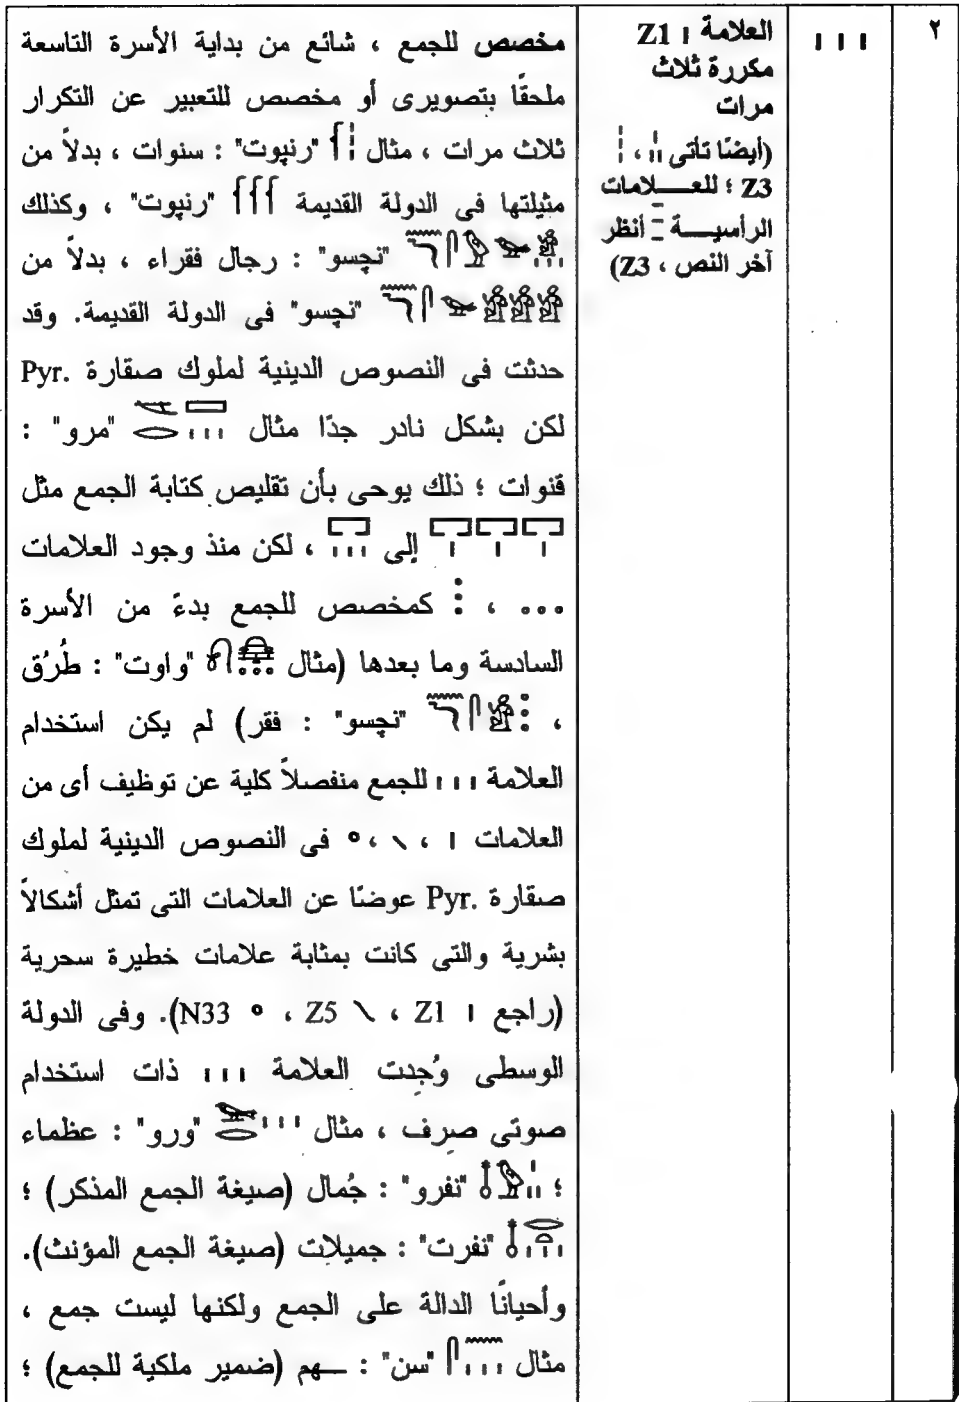 ٢
𓏤𓏤𓏤
العلامة 𓏤 Z1
مكررة ثلاث
مرات
(أيضًا تأتى 𓏨 ، 𓏪
Z3 ؛ للعـــــلامات
الرأسيـــــة 𓏫 أنظر
آخر النص ، Z3)
مخصص للجمع ، شائع من بداية الأسرة التاسعة
ملحقًا بتصويرى أو مخصص للتعبير عن التكرار
ثلاث مرات ، مثال 𓆳𓏪 "رنپوت" : سنوات ، بدلاً من
مثيلتها فى الدولة القديمة 𓆳𓆳𓆳 "رنپوت" ، وكذلك
"نچسو" : رجال فقراء ، بدلاً من
"نچسو" فى الدولة القديمة. وقد
حدثت فى النصوص الدينية لملوك صقارة Pyr.
لكن بشكل نادر جدًا مثال "مرو" :
قنوات ؛ ذلك يوحى بأن تقليص كتابة الجمع مثل
𓉐𓏤𓉐𓏤𓉐𓏤 إلى 𓉐𓏥 ، لكن منذ وجود العلامات
𓈒𓈒𓈒 ، ⋮ كمخصص للجمع بدءً من الأسرة
السادسة وما بعدها (مثال "واوت" : طُرُق
، "نچسو" : فقر) لم يكن استخدام
العلامة ııı للجمع منفصلاً كلية عن توظيف أى من
العلامات ı ، \ ، ° فى النصوص الدينية لملوك
صقارة Pyr. عوضًا عن العلامات التى تمثل أشكالاً
بشرية والتى كانت بمثابة علامات خطيرة سحرية
(راجع ı Z1 ، \ Z5 ، ° N33). وفى الدولة
الوسطى وُجدت العلامة ııı ذات استخدام
صوتى صرف ، مثال "ورو" : عظماء
؛ "نفرو" : جُمال (صيغة الجمع المذكر) ؛
"نفرت" : جميلات (صيغة الجمع المؤنث).
وأحيانًا الدالة على الجمع ولكنها ليست جمع ،
مثال 𓋴𓈖𓏥 "سن" : ـهم (ضمير ملكية للجمع) ؛